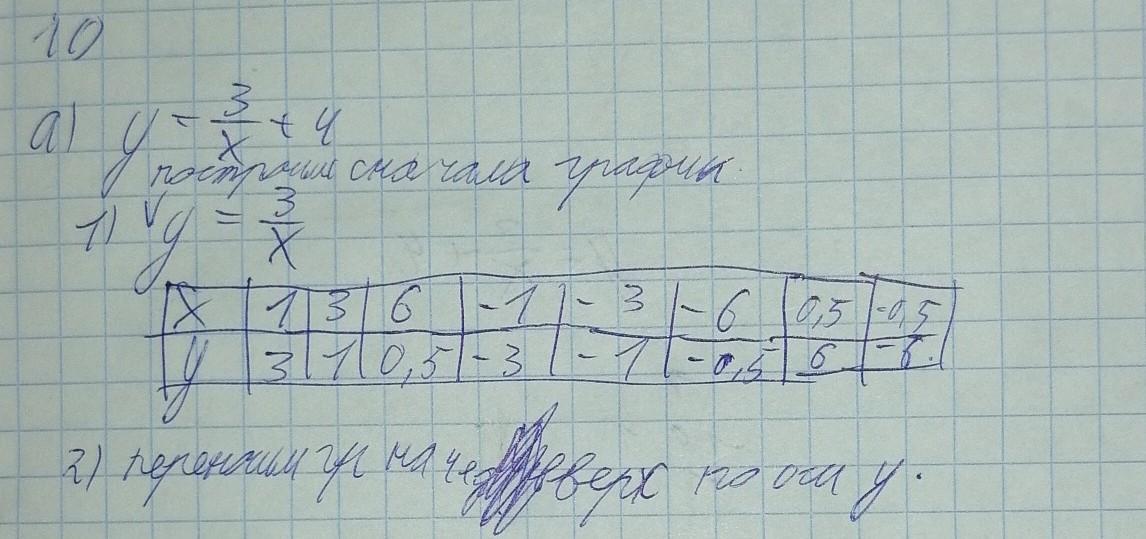 10
а) y = 3/x + 4
построим сначала график
1) y = 3/x
x 1 3 6 -1 -3 -6 0,5 -0,5
y 3 1 0,5 -3 -1 -0,5 6 -6
2) переносим гр на вверх по оси y.